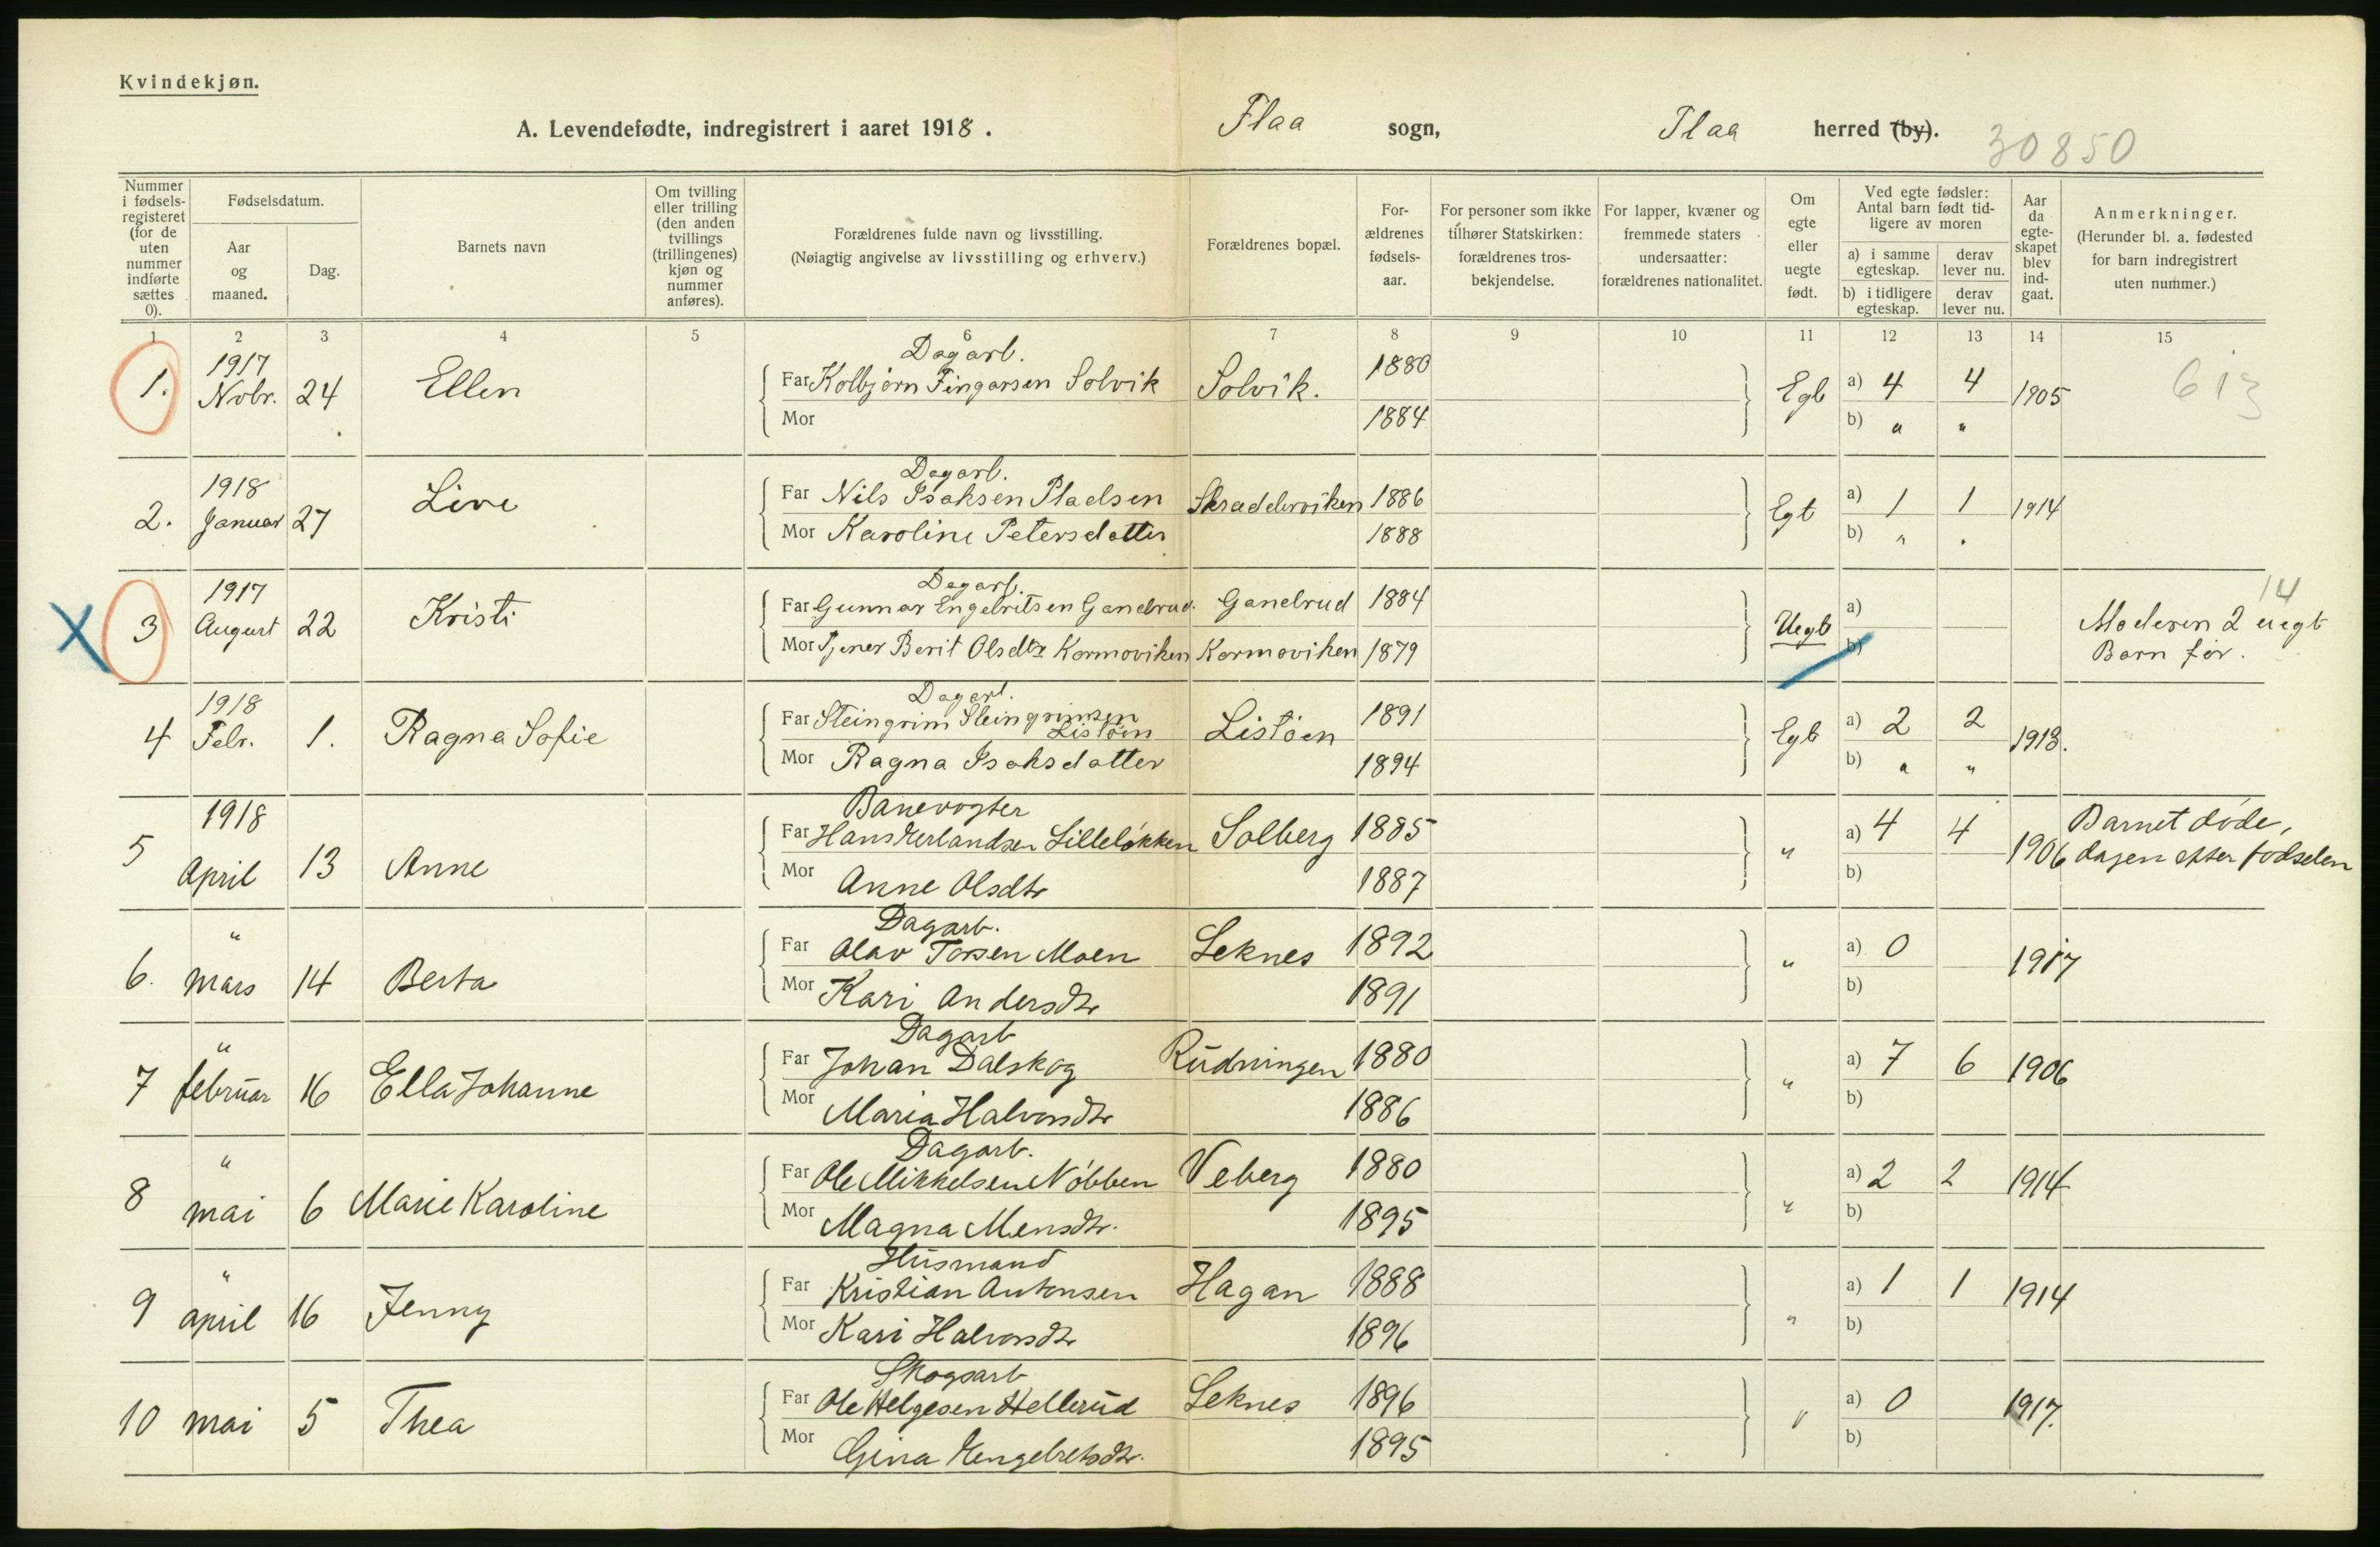 Kvindekjøn.
A. Levendefødte, indregistrert i aaret 1918. Flaa sogn, Flaa herred (by).
30850
Nummer i fødsels-registeret (for de uten nummer indførte sættes 0).
Fødselsdatum.
Aar og maaned.
Dag.
Barnets navn
Om tvilling eller trilling (den anden tvillings (trillingenes) kjøn og nummer anføres).
Forældrenes fulde navn og livsstilling.
(Nøiagtig angivelse av livsstilling og erhverv.)
Forældrenes bopæl.
For-ældrenes fødsels-aar.
For personer som ikke tilhører Statskirken: forældrenes tros-bekjendelse.
For lapper, kvæner og fremmede staters undersaatter: forældrenes nationalitet.
Om egte eller uegte født.
Ved egte fødsler: Antal barn født tid-ligere av moren
a) i samme egteskap.
derav lever nu.
b) i tidligere egteskap.
derav lever nu.
Aar da egte-skapet blev ind-gaat.
Anmerkninger.
(Herunder bl. a. fødested for barn indregistrert uten nummer.)
1 2 3 4 5 6 7 8 9 10 11 12 13 14 15
1917 Dagarb.
1. Novbr. 24 Ellen Far Kolbjørn Fingarsen Solvik Solvik. 1880 Egt a) 4 4 1905 613
Mor 1884 b) " "
1918 Dagarb.
2. Januar 27 Live Far Nils Isaksen Pladsen Skradderviken 1886 Egt a) 1 1 1914
Mor Karoline Petersdatter 1888 b) " "
1917 Dagarb. 14
X 3 August 22 Kristi Far Gunnar Engebritsen Gandrud. Gandrud 1884 Uegt a) Moderen 2 uegt
Mor Tjener Berit Olsdtr Kormoviken Kormoviken 1879 b) Barn før.
1918 Dagarb.
4 Febr. 1. Ragna Sofie Far Steingrim Steingrimsen Listöen Listöen 1891 Egt a) 2 2 1913.
Mor Ragna Isaksdatter 1894 b) " "
1918 Banevogter
5 April 13 Anne Far Hans Erlandsen Lilleløkken Solberg 1885 " a) 4 4 1906 Barnet døde,
Mor Anne Olsdtr 1887 b) dagen efter fødselen
" Dagarb.
6. mars 14 Berta Far Olav Torsen Moen Leknes 1892 " a) 0 1917
Mor Kari Andersdtr 1891 b)
" Dagarb
7 februar 16 Ella Johanne Far Johan Dalskog Rudningen 1880 " a) 7 6 1906
Mor Maria Halvorsdtr 1886 b)
" Dagarb.
8 mai 6 Marie Karoline Far Ole Mikkelsen Nöbben Veberg 1880 " a) 2 2 1914
Mor Magna Mensdtr. 1895 b)
" Husmand
9 april 16 Jenny Far Kristian Antonsen Hagan 1888 " a) 1 1 1914
Mor Kari Halvorsdtr 1896 b)
Skogsarb
10 mai 5 Thea Far Ole Helgesen Hellerud Leknes 1896 " a) 0 1917.
Mor Gina Engebretsdtr. 1895 b)